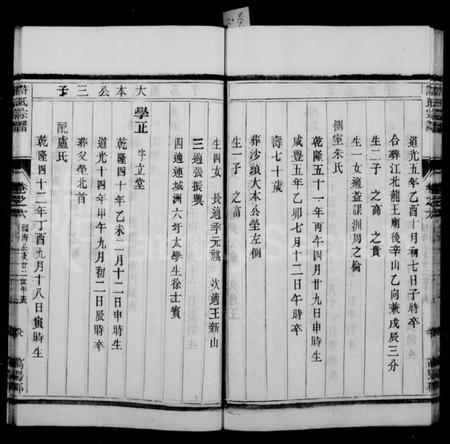 道光五年乙酉十月初七日子時卒
合葬江北龍王廟後辛山乙向兼戌辰三分
生二子 之高 之貴
生一女適益課洲周之倫
側室朱氏
乾隆五十一年丙午四月廿九日申時生
咸豐五年乙卯七月十二日午時卒
壽七十歲
葬沙頭大本公塋左側
生一子 之高
生四女 長適季元祺 次適王新山
三適張振興
四適連城洲六圩太學生徐士賓
大本公三子
學正 字立堂
乾隆四十年乙未二月十二日申時生
道光十四年甲午九月初二日辰時卒
葬父塋北首
配盧氏
乾隆四十二年丁酉九月十八日寅時生
卷之六